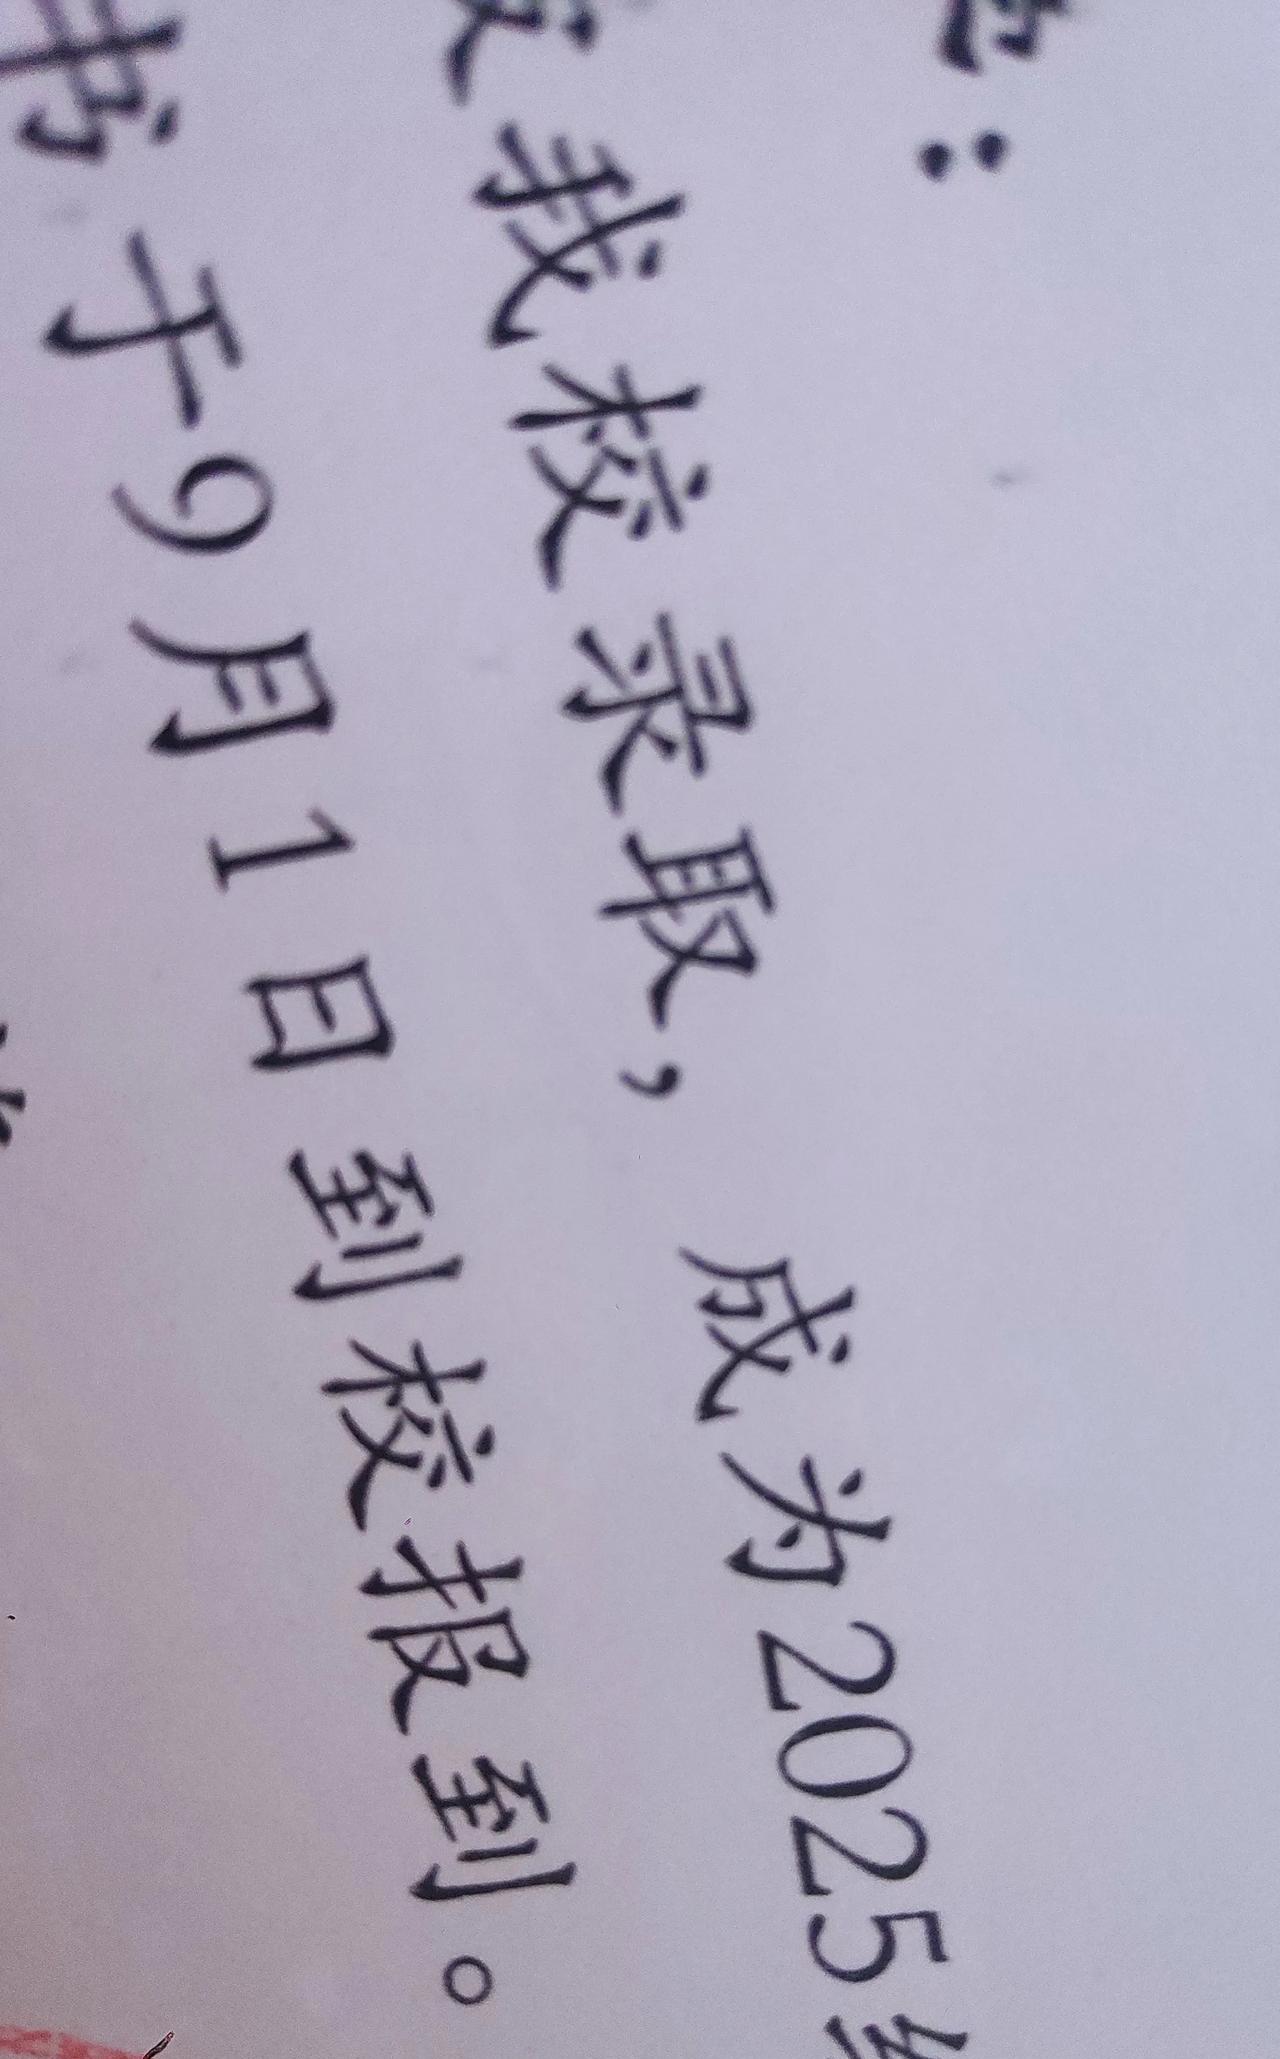 ：
我校录取，成为2025级
书于9月1日到校报到。